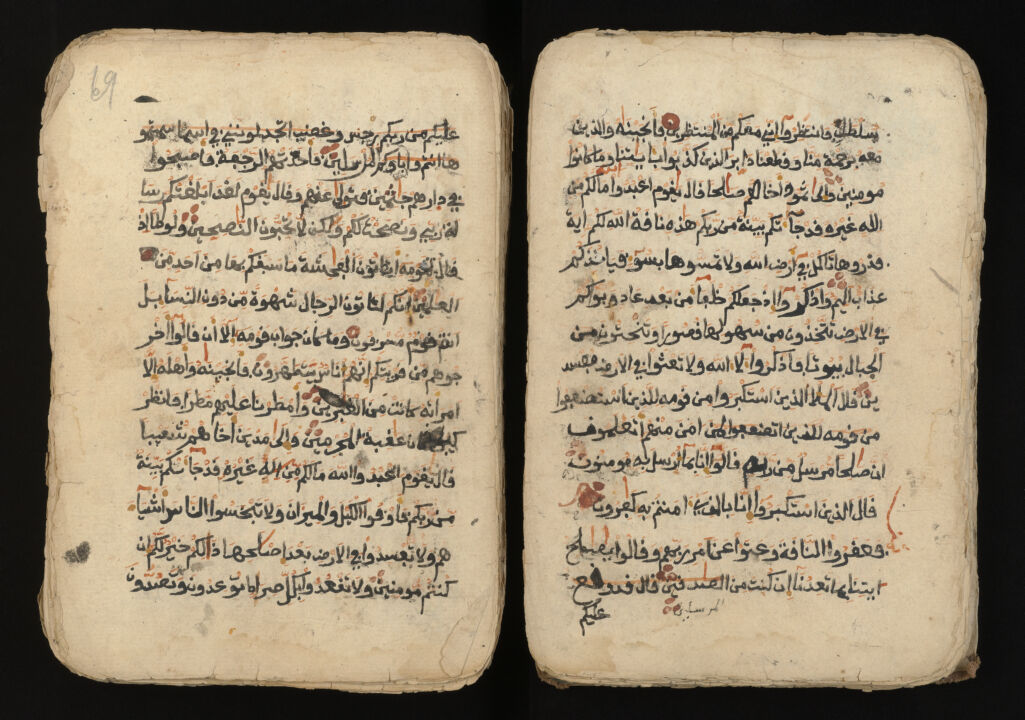 سلطن فانتظروا اني معكم من المنتظرين فانجينه والذين
معه برحمة منا وقطعنا دابر الذين كذبوا بايتنا وما كانوا
مومنين والى ثمود اخاهم صلحا قال يقوم اعبدوا ما لكم من
الله غيره قد جاتكم بينة من ربكم هذه ناقة الله لكم اية
فذروها تاكل في ارض الله ولا تمسوها بسو فياخذكم
عذاب اليم واذكروا اذ جعلكم خلفا من بعد عاد وبواكم
في الارض تتخذون من سهولها قصورا وتنحتون من
الجبال بيوتا فاذكروا الا الله ولا تعثوا في الارض مفسد
ين قال الملا الذين استكبروا من قومه للذين استضعفوا
من قومه للذين استضعفوا لمن امن منهم اتعلمون
ان صلحا مرسل من ربه قالوا انا بما ارسل به مومنون
قال الذين استكبروا انا بالذي امنتم به كفرون
فعقروا الناقة وعتوا عن امر ربهم وقالوا يصلح
ايتنا بما تعدنا ان كنت من الصدقين قال قد وقع
المرسلين
عليكم
69
عليكم من ربكم رجس وغضب اتجدلونني في اسما سميتمو
في دارهم جثمين فتولى عنهم وقال يقوم لقد ابلغتكم رسا
لة ربي ونصحت لكم ولكن لا تحبون النصحين ولوطا اذ
قال لقومه اتاتون الفحشة ما سبقكم بها من احد من
العلمين انكم لتاتون الرجال شهوة من دون النسا بل
انتم قوم مسرفون وما كان جواب قومه الا ان قالوا اخر
جوهم من قريتكم انهم اناس يتطهرون فانجينه واهله الا
امراته كانت من الغبرين وامطرنا عليهم مطرا فانظر
كيف كان عقبة المجرمين والى مدين اخاهم شعيبا
قال يقوم اعبدوا الله ما لكم من اله غيره قد جاتكم بينة
من ربكم فاوفوا الكيل والميزان ولا تبخسوا الناس اشيا
هم ولا تفسدوا في الارض بعد اصلحها ذلكم خير لكم ان
كنتم مومنين ولا تقعدوا بكل صراط توعدون وتصدون